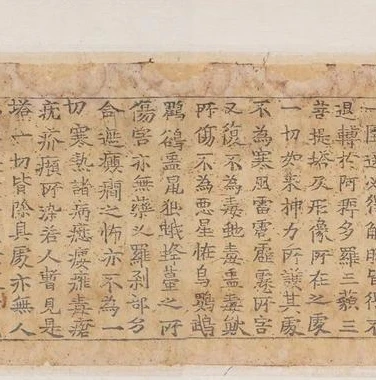 圍遶必得解脫皆得不
退轉於阿耨多羅三藐三
菩提塔及形像所在之處
一切如來神力所護其處
不為寒風雷電霹靂所害
又復不為毒蛇毒蟲毒獸
所傷不為惡星怪鳥鸚鵡
鸜鵒蟲鼠狼蜂蠆之所
傷害亦無藥叉羅剎部
癲癇之怖亦不為一
切寒熱諸病瘰癧癰毒瘡
疥癩所染若人暫見是
塔一切皆除其處亦無人